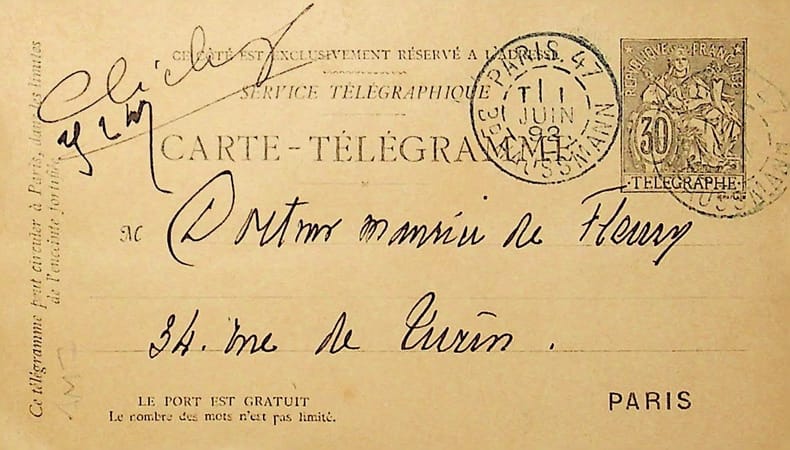 CE CÔTÉ EST EXCLUSIVEMENT RÉSERVÉ A L'ADRESSE
SERVICE TÉLÉGRAPHIQUE
CARTE-TÉLÉGRAMME
PARIS. 47
JUIN
92
BD HAUSSMANN
REPUBLIQUE FRANÇAISE
30
TELEGRAPHE
HAUSSMANN
M Docteur Maurice de Fleury
34. rue de Turin.
PARIS
LE PORT EST GRATUIT
Le nombre des mots n'est pas limité.
Ce télégramme peut circuler à Paris, dans les limites
de l'enceinte fortifiée